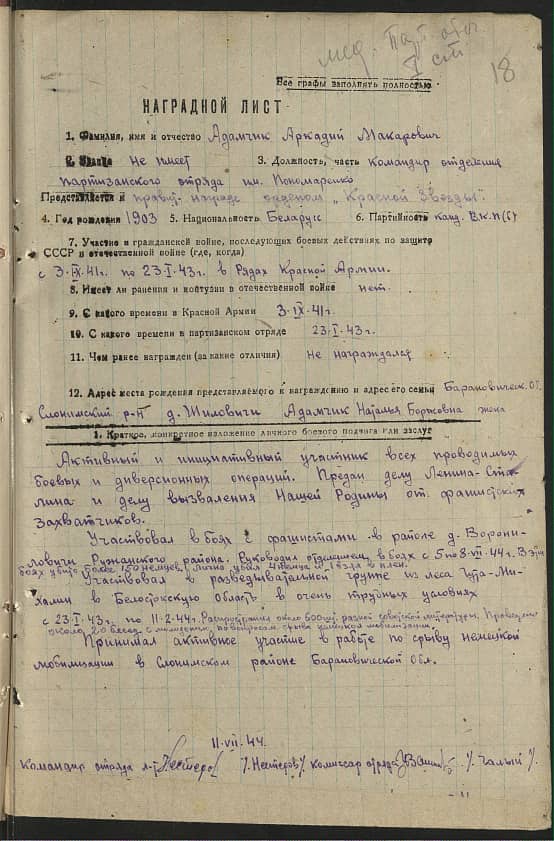 мед. Парт. отеч.
I ст
18
Все графы заполнять полностью
НАГРАДНОЙ ЛИСТ
1. Фамилия, имя и отчество Адамчик Аркадий Макарович
2. Звание Не имеет 3. Должность, часть командир отделения
партизанского отряда им. Пономаренко
Представляется к правит. награде орденом „Красной Звезды".
4. Год рождения 1903 5. Национальность Беларус 6. Партийность канд. В.К.П(б)
7. Участие в гражданской войне, последующих боевых действиях по защите
СССР и отечественной войне (где, когда)
с 3.IX.41г. по 23.I.43г. в Рядах Красной Армии.
8. Имеет ли ранения и контузии в отечественной войне нет.
9. С какого времени в Красной Армии 3.IX.41г.
10. С какого времени в партизанском отряде 23.I.43г.
11. Чем ранее награжден (за какие отличия) не награждался
12. Адрес места рождения представляемого к награждению и адрес его семьи Барановическ. об.
Слонимский р-н д. Шиловичи Адамчик Наталья жена
1. Краткое, конкретное изложение личного боевого подвига или заслуг
Активный и инициативный участник всех проводимых
боевых и диверсионных операций. Предан делу Ленина-Ста-
лина и делу вызваления Нашей Родины от фашистских
захватчиков.
Участвовал в боях с фашистами в районе д. Ворони-
ловичи Ружанского района. Руководил отделением в боях с 5 по 8.VII.44г. В эти
боях убито более 150 немцев, лично убил 4 немца и взял в плен.
Участвовал в разведывательной группе из леса Гута-Ми-
халин в Белостокскую область в очень трудных условиях
с 23.I.43г. по 11.2.44г. Распространил около 600 шт. разной советской литературы. Проведено
около 20 бесед с населением, по вопросам срыва немецкой мобилизации.
Принимал активное участие в работе по срыву немецкой
мобилизации в Слонимском районе Барановической Обл.
11.VII.44.
Командир отряда л-т /Нестеров/ Комиссар отряда /Чалый/.